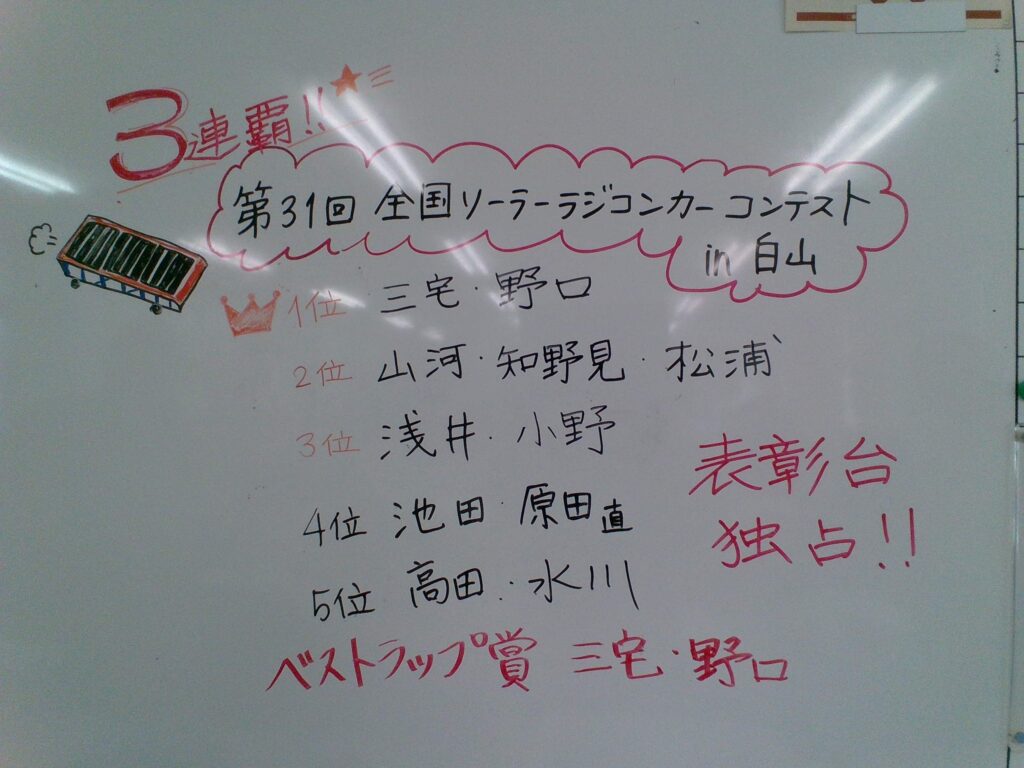 3連覇!!
第31回 全国ソーラーラジコンカーコンテスト
in 白山
1位 三宅・野口
2位 山河・知野見・松浦
3位 浅井・小野
4位 池田・原田直
5位 高田・水川
表彰台
独占!!
ベストラップ賞 三宅・野口